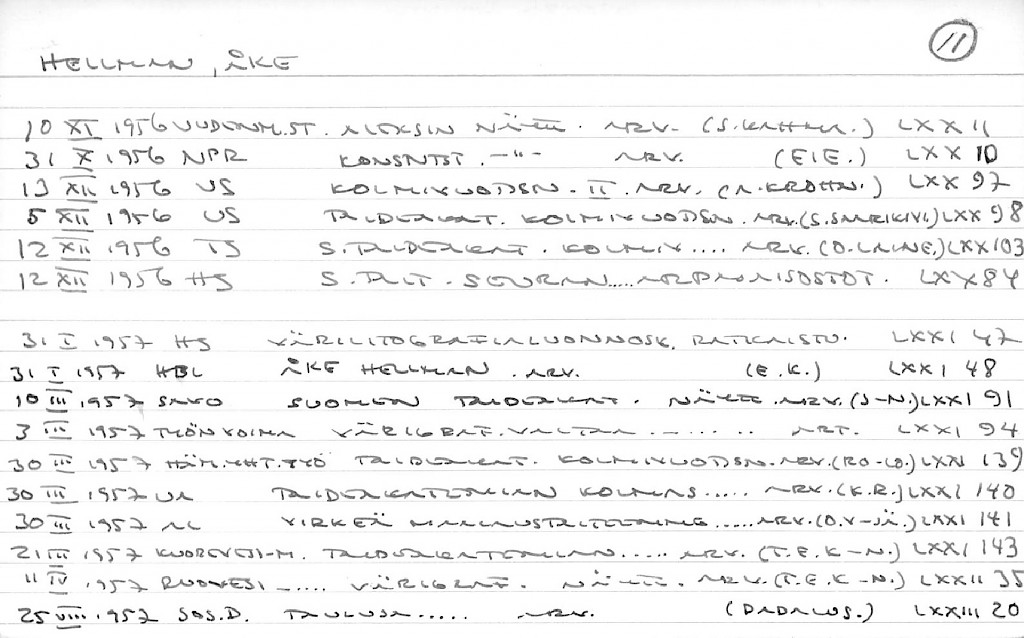 11
HELLMAN, ÅKE
10 XI 1956 UUDENM.ST. ALEKSIN NÄYTT. ARV. (S. ) LXX 11
31 X 1956 NPR KONSNTST. -"- ARV. (EIE.) LXX 10
13 XII 1956 US KOLMIVUOTISN. II. ARV. (A. KROHN.) LXX 97
5 XII 1956 US TAIDEAKAT. KOLMIVUOTISN. ARV. (S. SAARIKIVI.) LXX 98
12 XII 1956 TS S. TAIDEAKAT. KOLMIV.... ARV. (O. LAINE.) LXX 103
12 XII 1956 HS S. TAIT. SEURAN.....ARPAJAISOSTOT. LXX 84
31 I 1957 HS VÄRILITOGRAFIALUONNOSK. RATKAISTU. LXXI 47
31 I 1957 HBL ÅKE HELLMAN. ARV. (E.K.) LXXI 48
10 III 1957 SAVO SUOMEN TAIDEAKAT. NÄYTT. ARV. (S-N.) LXXI 91
3 III 1957 TYÖN VOIMA VÄRIGRAF. VALTAA ........ ART. LXXI 94
30 III 1957 HÄM.YHT.TYÖ TAIDEAKAT. KOLMIVUOTISN. ARV. (RO-LO.) LXXI 139
30 III 1957 UA TAIDEAKATEMIAN KOLMAS..... ARV. (K.R.) LXXI 140
30 III 1957 AL VIRKEÄ MAALAUSTAITEEMME.....ARV. (O.V-JÄ.) LXXI 141
21 III 1957 KUOREVESI-M. TAIDEAKATEMIAN..... ARV. (T.E.K-N.) LXXI 143
11 IV 1957 RUOVESI ..... VÄRIGRAF. NÄYTT. ARV. (T.E.K-N.) LXXII 35
25 VIII 1957 SOS.D. TAULUJA..... ARV. (DADALUS.) LXXIII 20